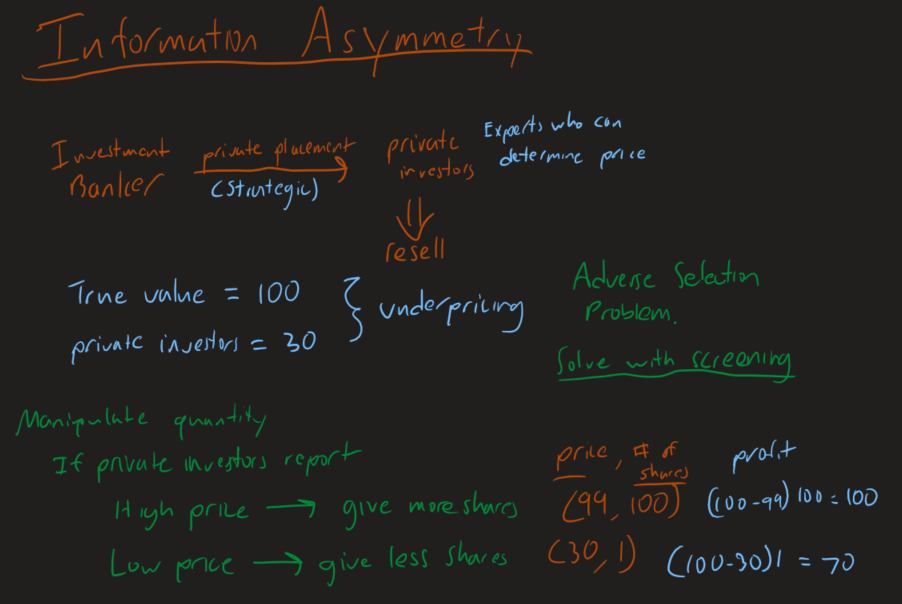 Information Asymmetry
Investment Banker
private placement
(Strategic)
private investors
Experts who can
determine price
resell
True value = 100
private investors = 30
underpricing
Adverse Selection
Problem.
Solve with screening
Manipulate quantity
If private investors report
High price → give more shares
Low price → give less shares
price, # of shares
profit
(99, 100) (100-99) 100 = 100
(30, 1) (100-30) 1 = 70